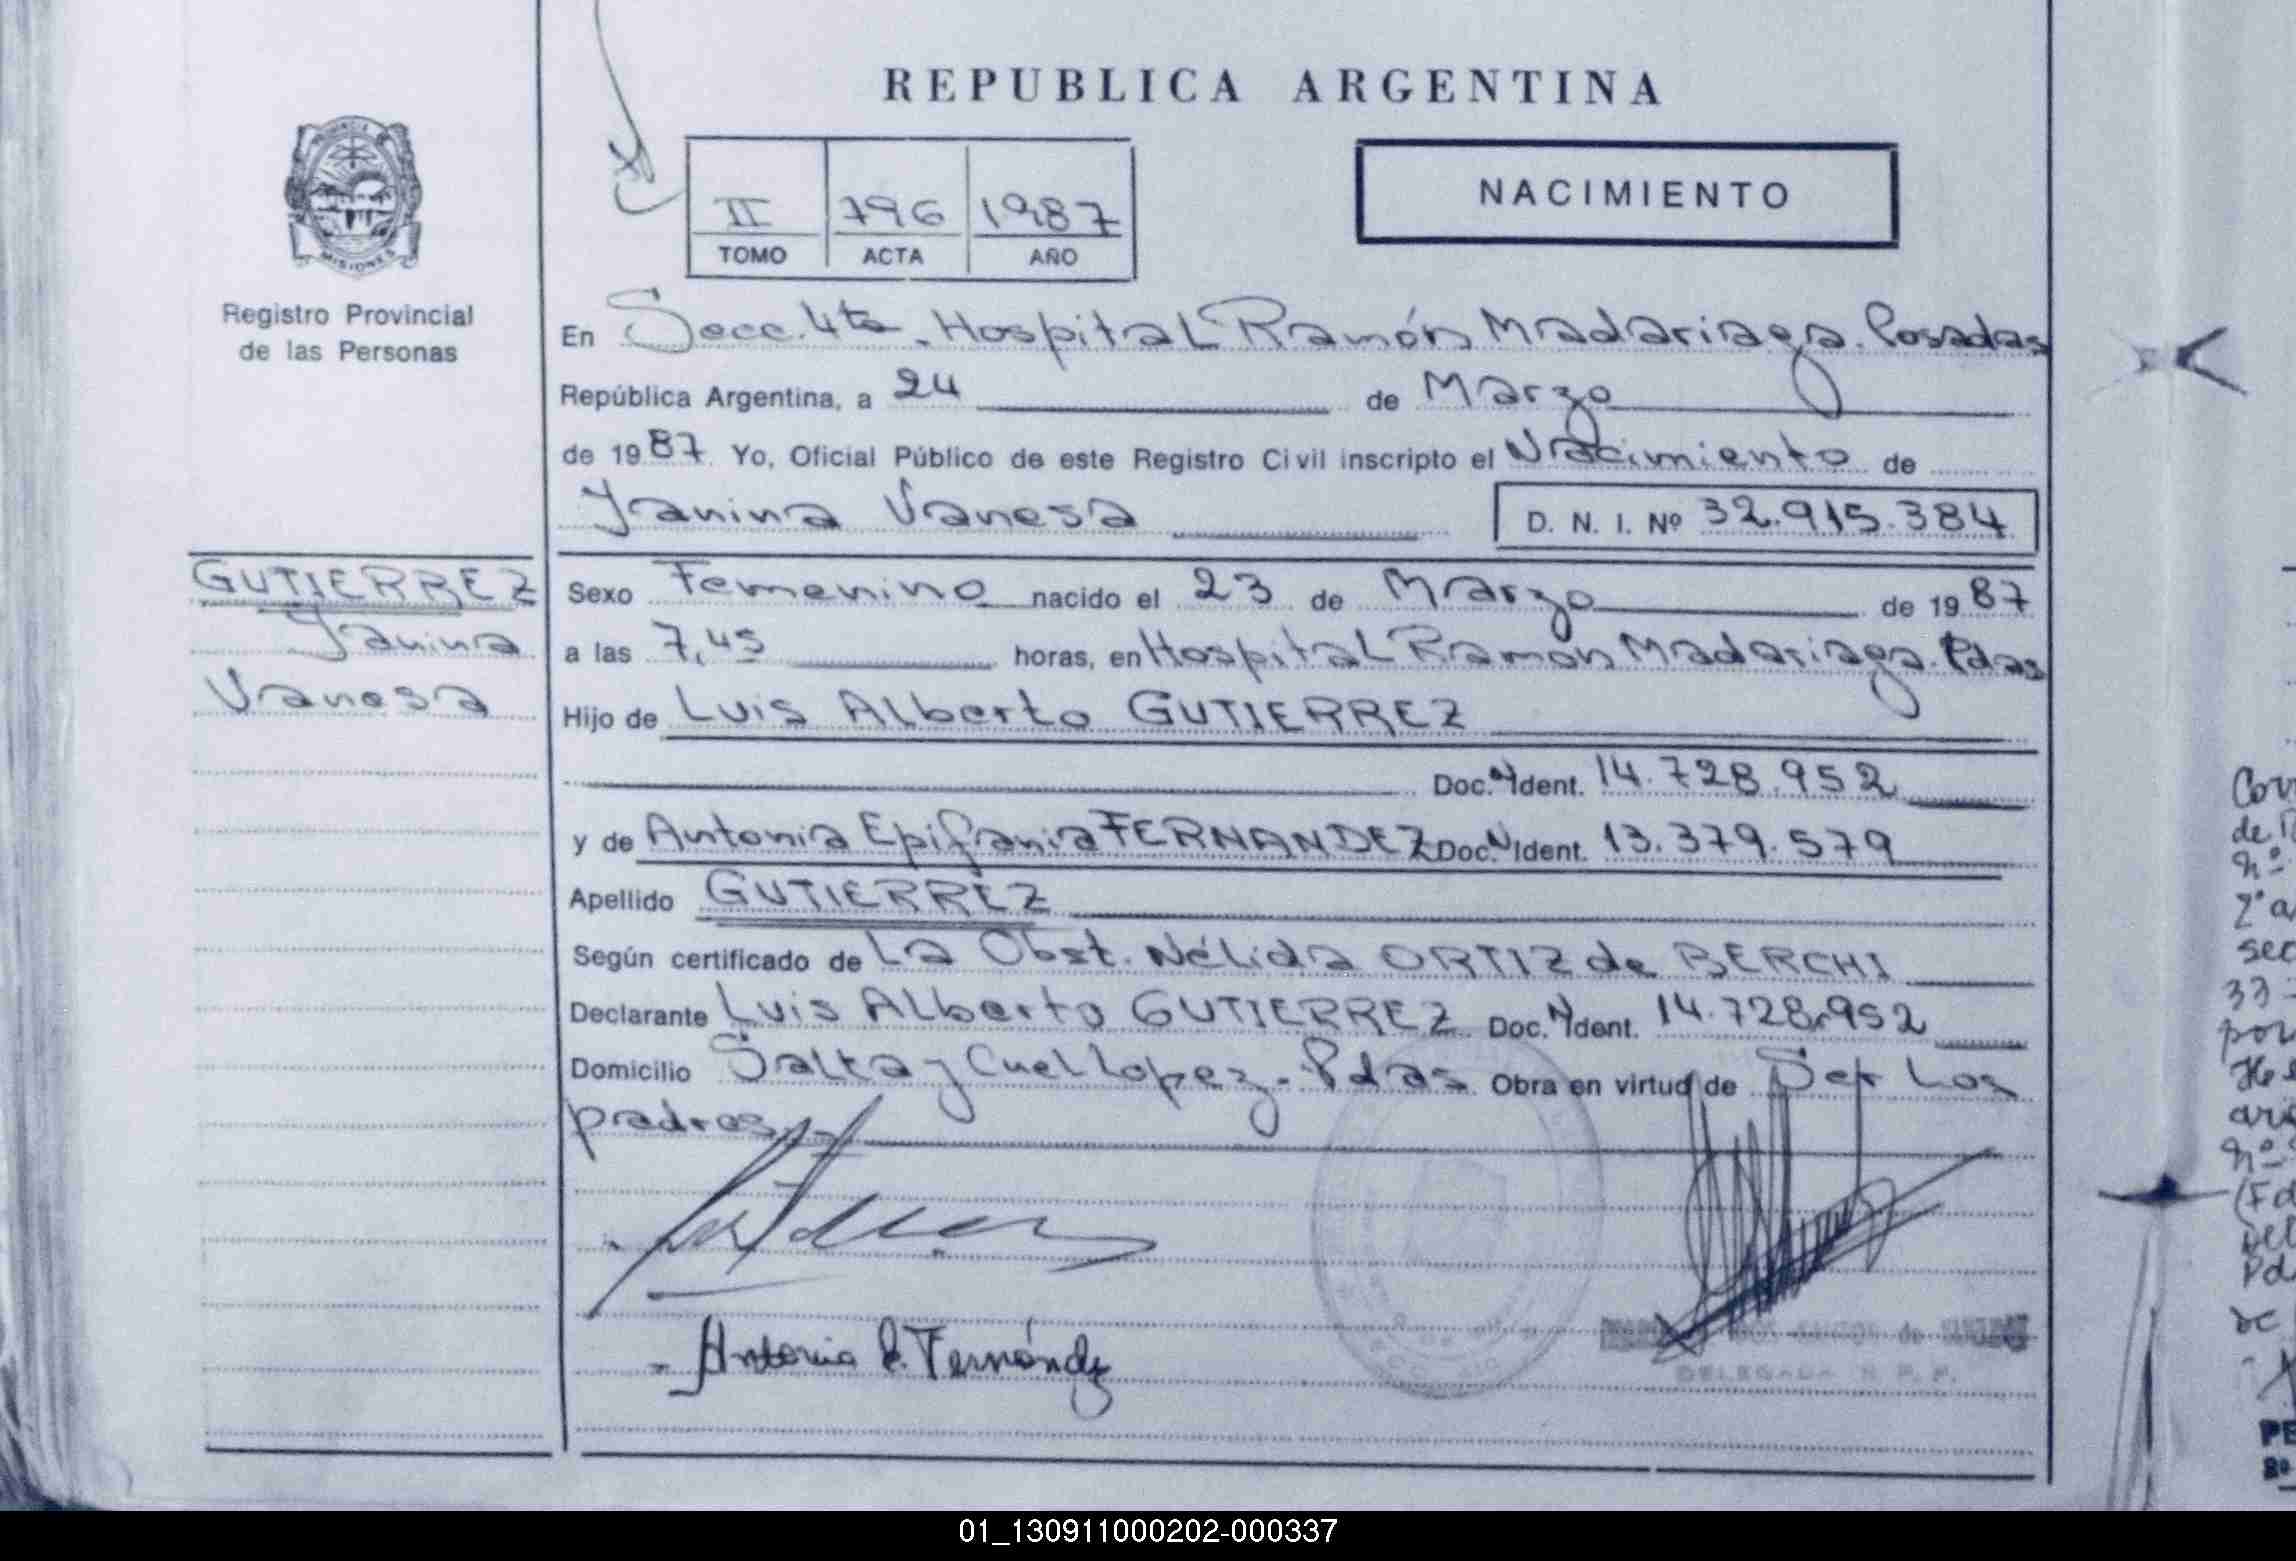 REPUBLICA ARGENTINA
PROVINCIA DE
MISIONES
Registro Provincial
de las Personas
II 796 1987
TOMO ACTA AÑO
NACIMIENTO
En Secc. 4ta. Hospital Ramón Madariaga. Posadas
República Argentina, a 24 de Marzo
de 1987. Yo, Oficial Público de este Registro Civil inscripto el Nacimiento de
Yanina Vanesa D. N. I. Nº 32.915.384
GUTIERREZ
Yanina
Vanesa
Sexo Femenino nacido el 23 de Marzo de 1987
a las 7,45 horas, en Hospital Ramon Madariaga. Pdas
Hijo de Luis Alberto GUTIERREZ
Doc. N/ Ident. 14.728.952
y de Antonia Epifania FERNANDEZ Doc. N/ Ident. 13.379.579
Apellido GUTIERREZ
Según certificado de La Obst. Nélida ORTIZ de BERCHI
Declarante Luis Alberto GUTIERREZ Doc. N/ Ident. 14.728.952
Domicilio Salta y Cnel Lopez. Pdas Obra en virtud de Ser Los
padres
Antonia E. Fernández
DELEGADA R. P. P.
01_130911000202-000337